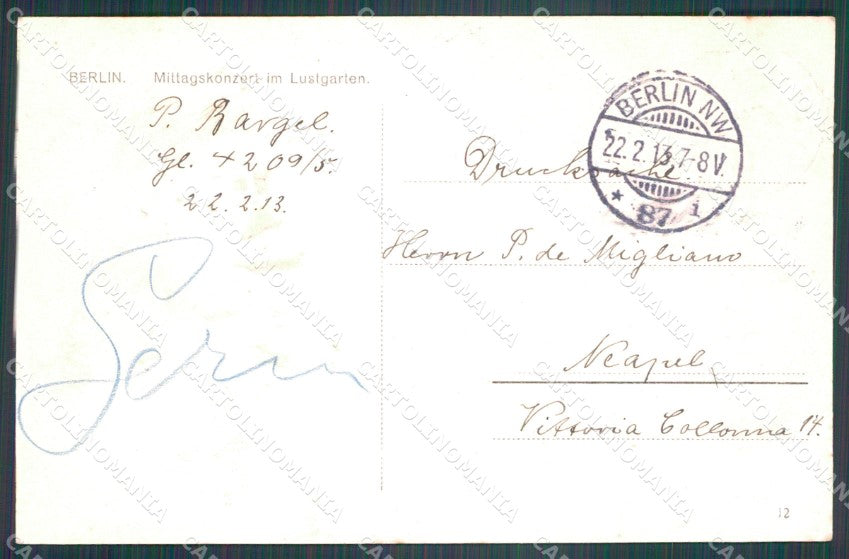 BERLIN. Mittagskonzert im Lustgarten.
P. Bargel.
Gl. + 2 09/5.
22.2.13.
BERLIN NW
22.2.13.7-8V.
* 87 i
Drucksache
Herrn P. de Migliano
Neapel
Vittoria Collonna 14.
12
CARTOLINOMANIA